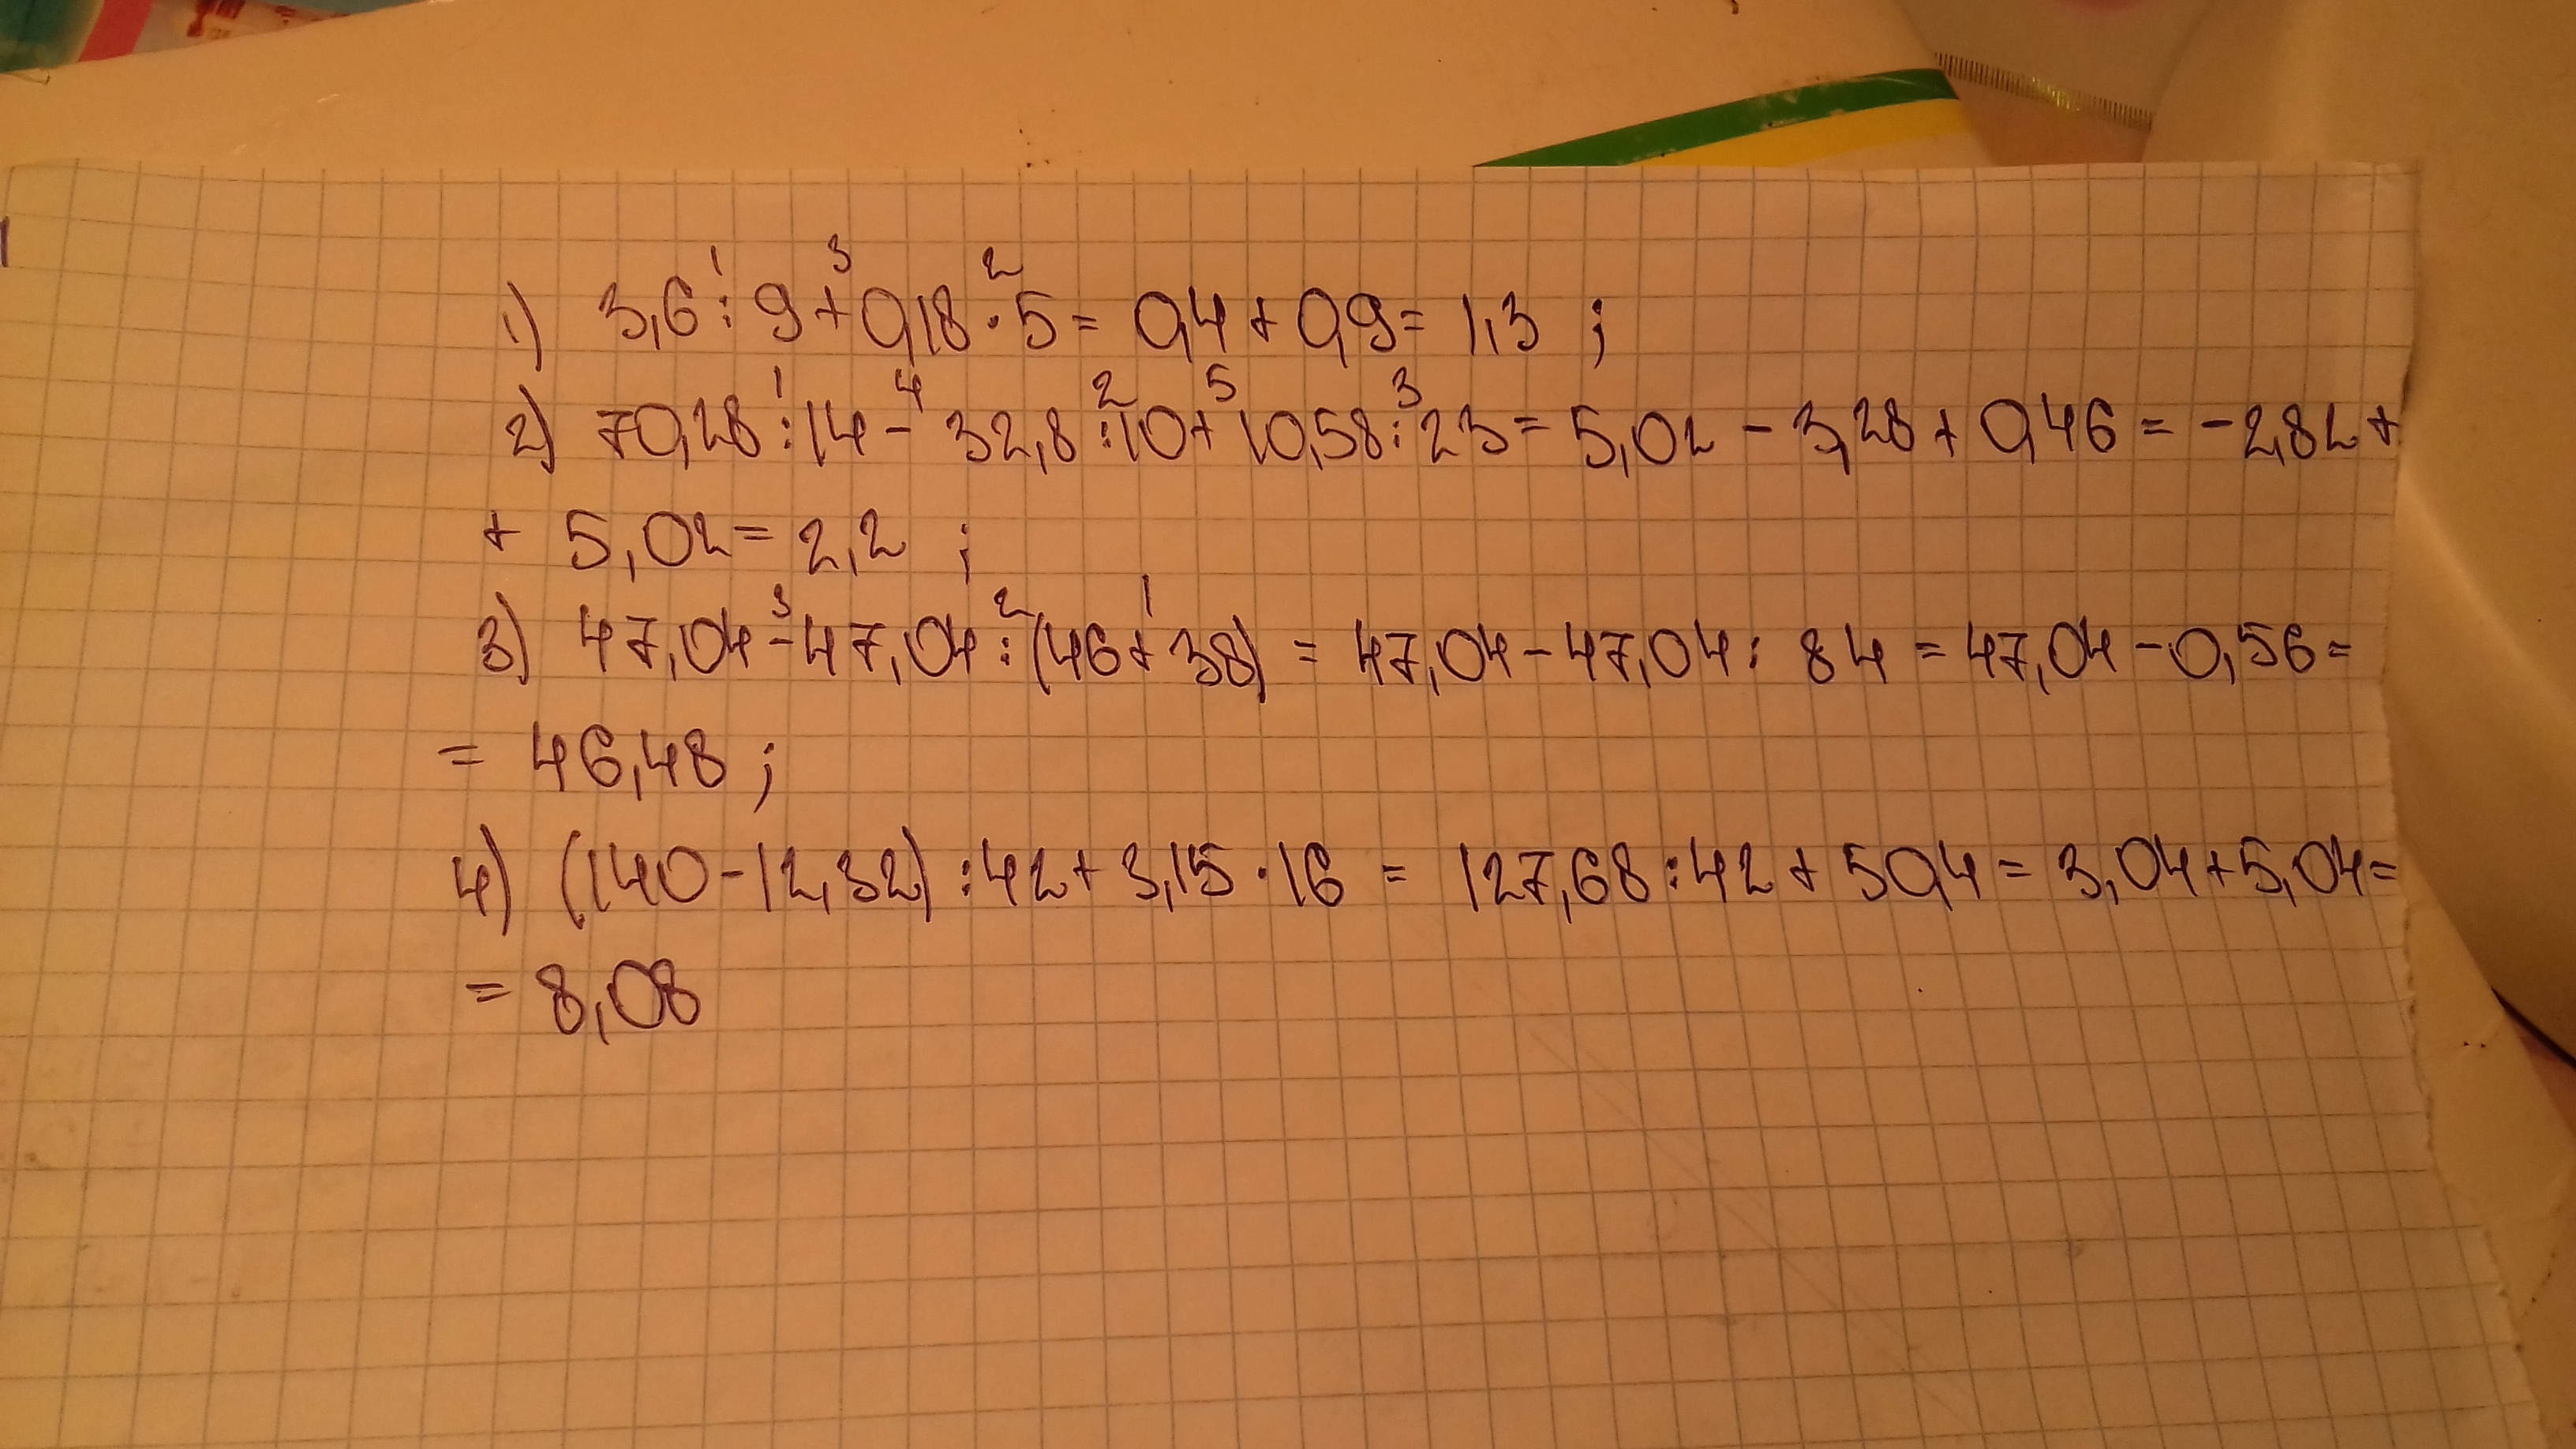 1) 3,6 : 9 + 0,18 · 5 = 0,4 + 0,9 = 1,3 ;
2) 70,28 : 14 - 32,8 : 10 + 10,58 : 23 = 5,02 - 3,28 + 0,46 = -2,82 +
+ 5,02 = 2,2 ;
3) 47,04 - 47,04 : (46 + 38) = 47,04 - 47,04 : 84 = 47,04 - 0,56 =
= 46,48 ;
4) (140 - 12,32) : 42 + 3,15 · 16 = 127,68 : 42 + 50,4 = 3,04 + 5,04 =
= 8,08